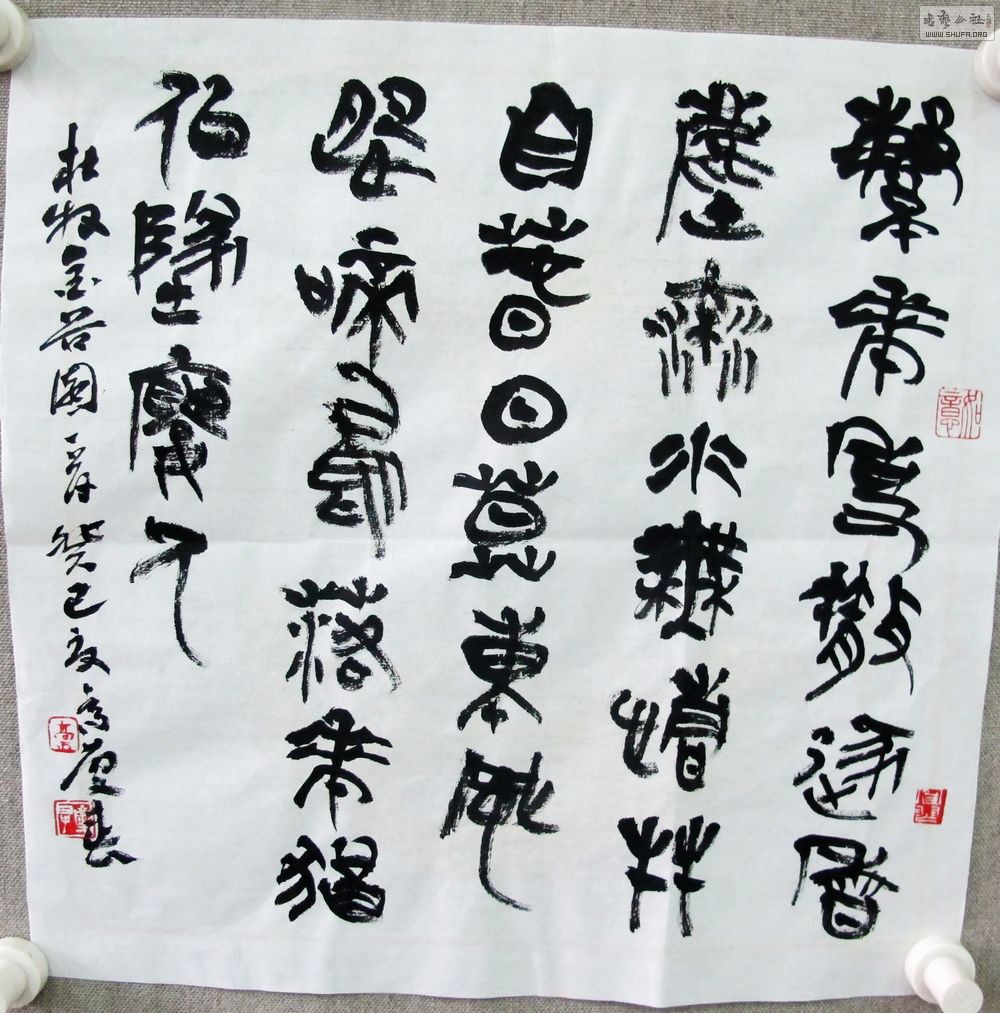 繁華事散逐香
塵流水無情艸
自春日暮東風
怨啼鳥落華猶
似墜樓人
杜牧金谷園一首癸巳夏高慶春
如意
書藝公社
WWW.SHUFA.ORG